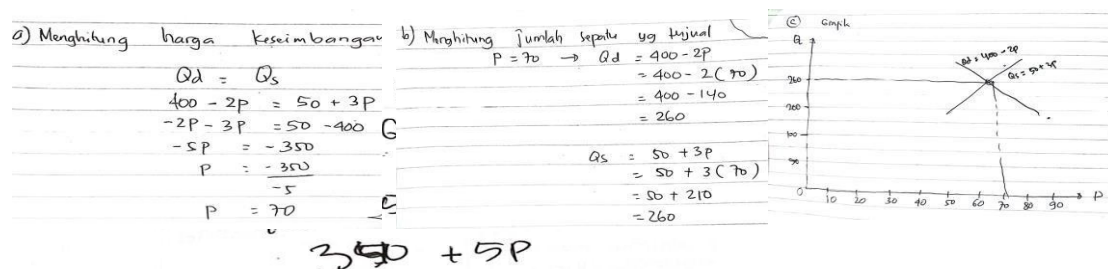 a) Menghitung harga keseimbangan
Qd = Qs
400 - 2P = 50 + 3P
-2P - 3P = 50 - 400
-5P = -350
P = -350
-5
P = 70
b) Menghitung jumlah sepatu yg terjual
P = 70 → Qd = 400 - 2P
= 400 - 2(70)
= 400 - 140
= 260
Qs = 50 + 3P
= 50 + 3(70)
= 50 + 210
= 260
c) Grafik
Q
Qd = 400 - 2P
Qs = 50 + 3P
260
200
100
50
0
10 20 30 40 50 60 70 80 90 P
+ 5P